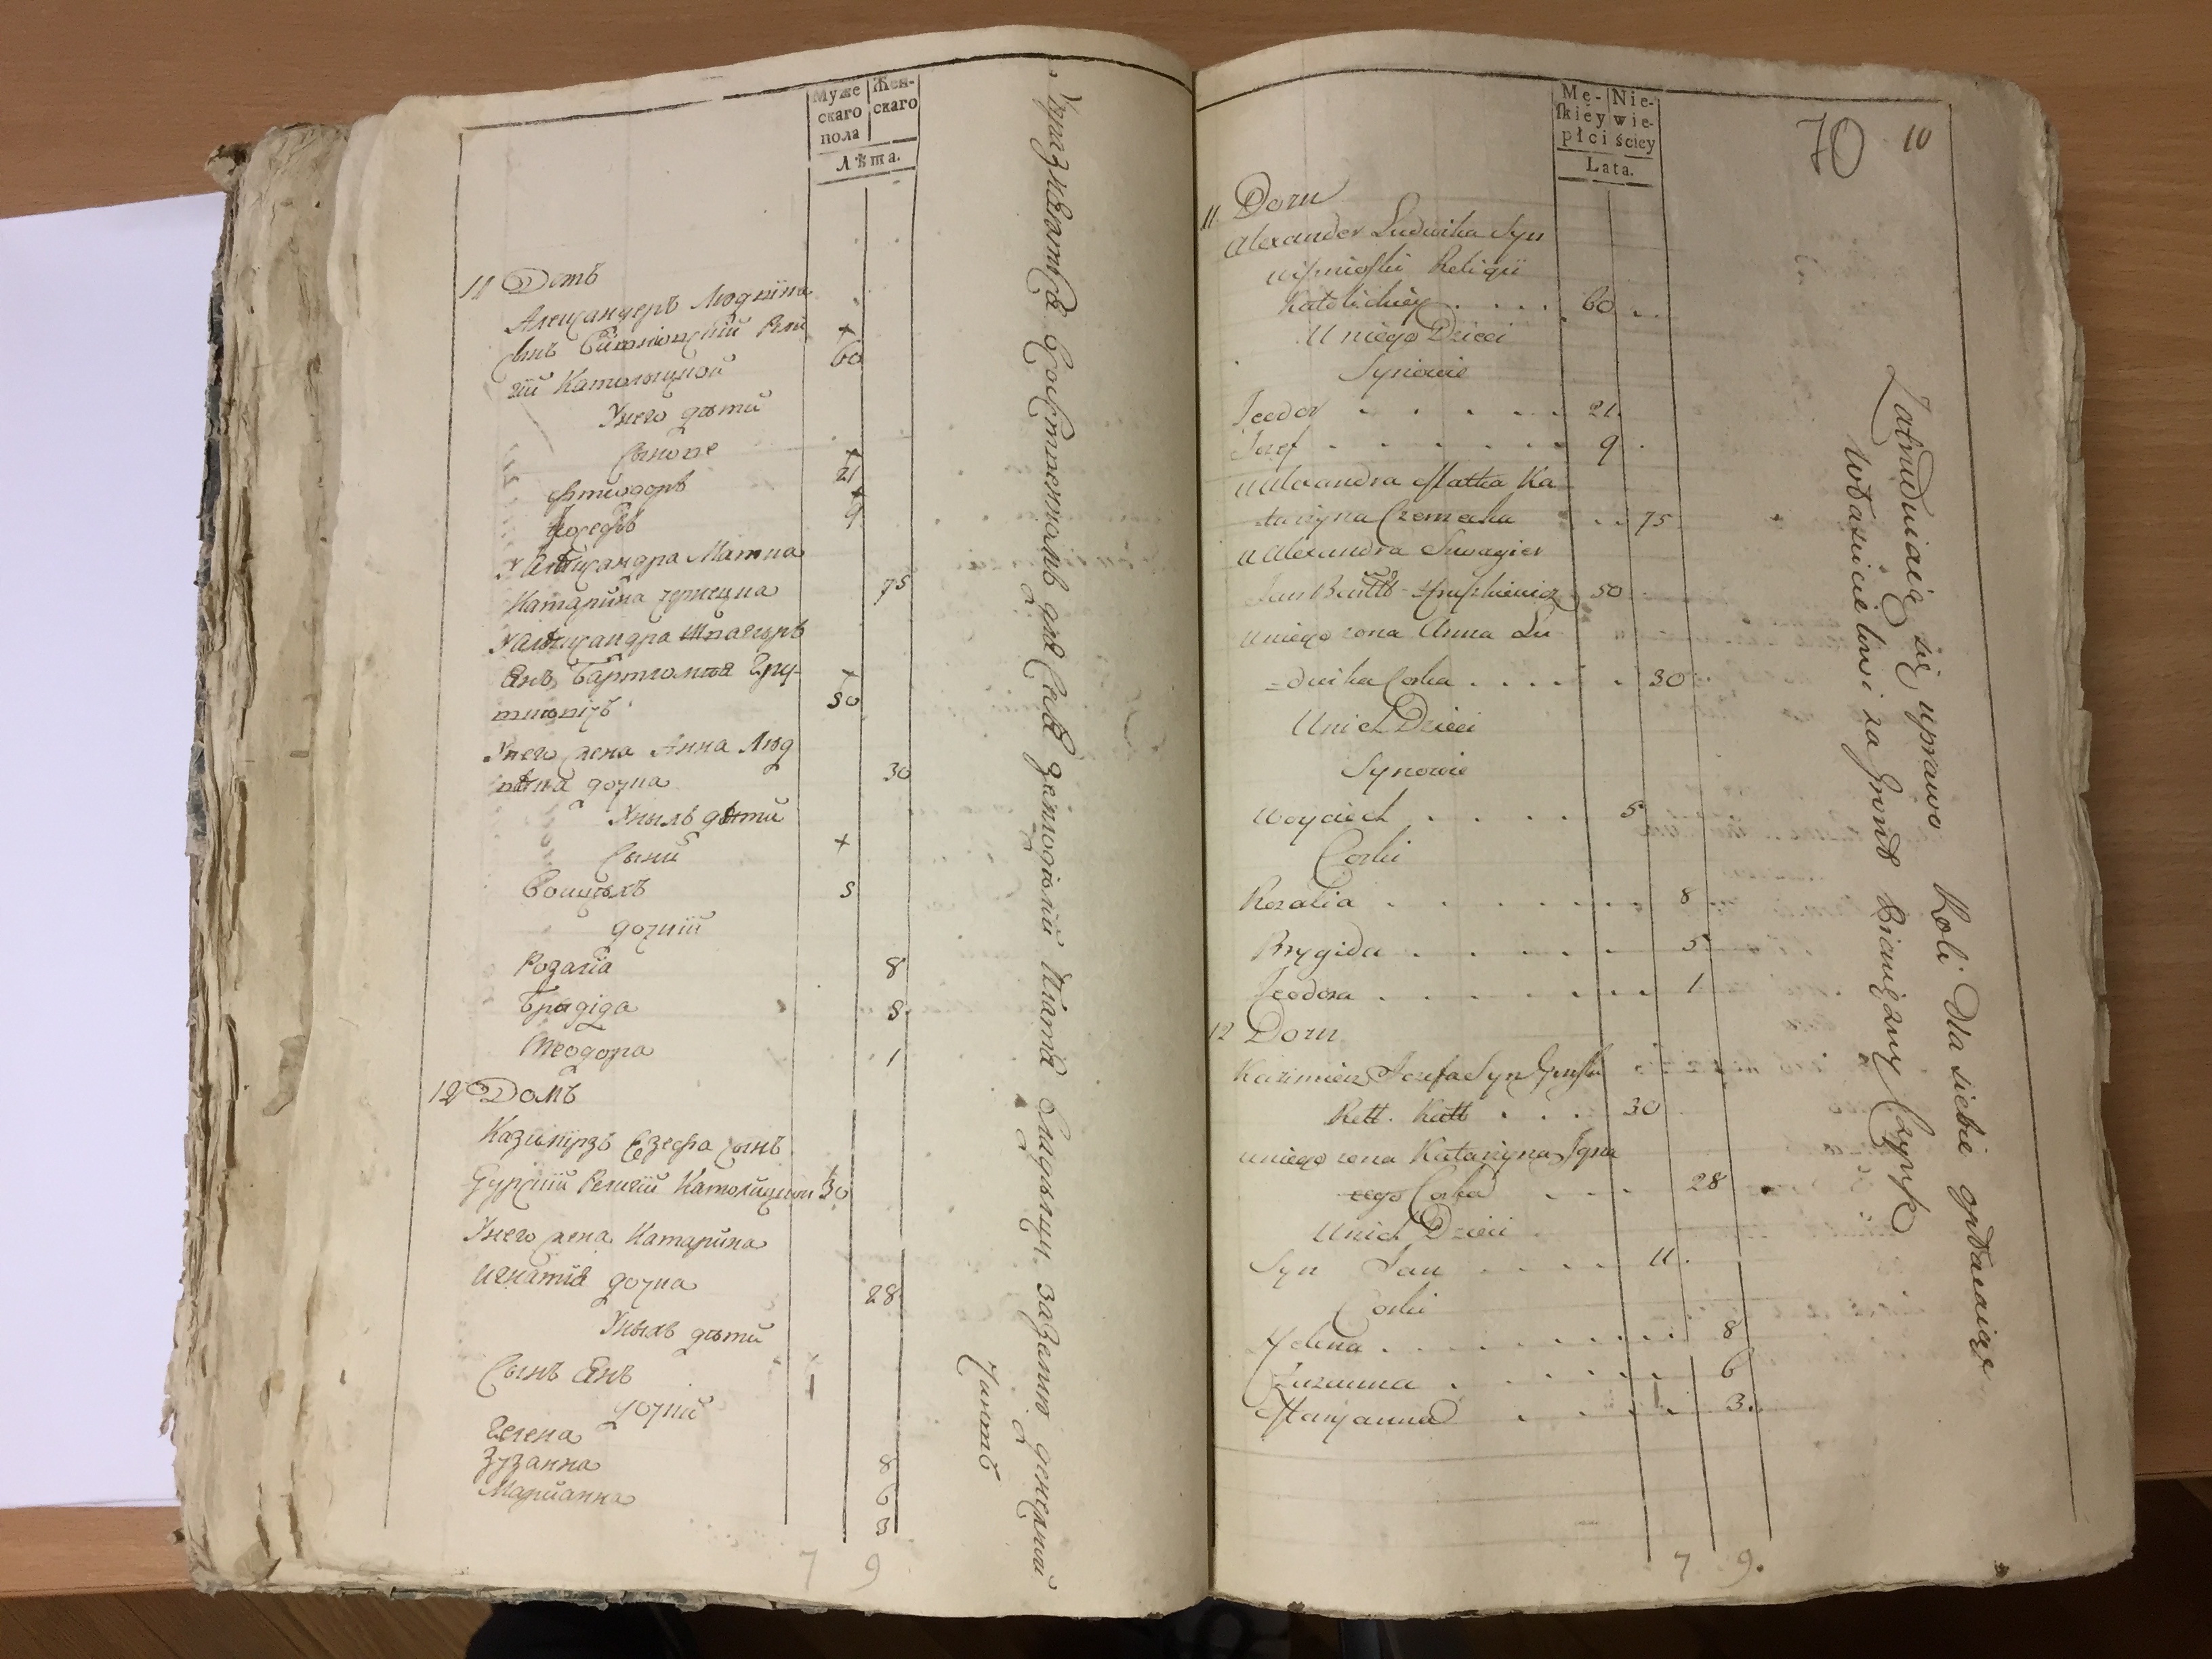 Муже
скаго
пола
Жен-
скаго
Лѣта.
11 Домъ
Александеръ Людвика
Сынъ Рели
гій Католицкой
60
Унего дѣти
Сынове
Ѳтеодоръ 21
Іосефъ 9
Уалександра Матка
Катарина чернецка 75
Уалександра Швагеръ
Янъ Бартломѣя Гру-
50
Унего жена Анна Люд
вика дочка 30
Унихъ дѣти
Сыни
Войцехъ 5
дочки
Розалія 8
Бригида 5
Теодора 1
12 Домъ
Казимірзъ Езефа сынъ
Гурскій Религій Католицкой 30
Унего жена Катарина
Игнатія дочка 28
Унихъ дѣти
Сынъ Янъ 11
дочки
Гелена 8
Зузанна 6
Марианна 3
7 9
для Себѣ за Землю денежный
Чиншъ
Mę-
skiey
płci
Nie-
wie-
ściey
Lata.
70 10
11 Dom
Alexander Ludwika Syn
Religii
Katolickiey . . . . 60 . .
U niego Dzieci
Synowie
Teodor . . . . . . 21.
Jozef . . . . . . 9 .
u Alexandra Matka Ka
tarzyna Czernecka . . 75.
u Alexandra Swagier
Jan Bartło 50 .
u niego zona Anna Lu
dwika Corka . . . . . 30 .
U nich Dzieci
Synowie
Woyciech . . . . 5
Corki
Rozalia . . . . . . . 8 .
Brygida . . . . . 5.
Teodora . . . . . . . 1.
12 Dom
Kazimierz Jozefa Syn Gurski
Rell. Katt . . . . 30
u niego zona Katarzyna Igna
cego Corka . . . 28
U nich Dzieci
Syn Jan . . . . 11.
Corki
Helena . . . . . . . 8
Zuzanna . . . . . . 6
Maryanna . . . . 3.
7 9.
Zatrudniaią się uprawą Roli Dla siebie opłacaiąc
Własicielowi za Grunt Pieniężny Czynsz